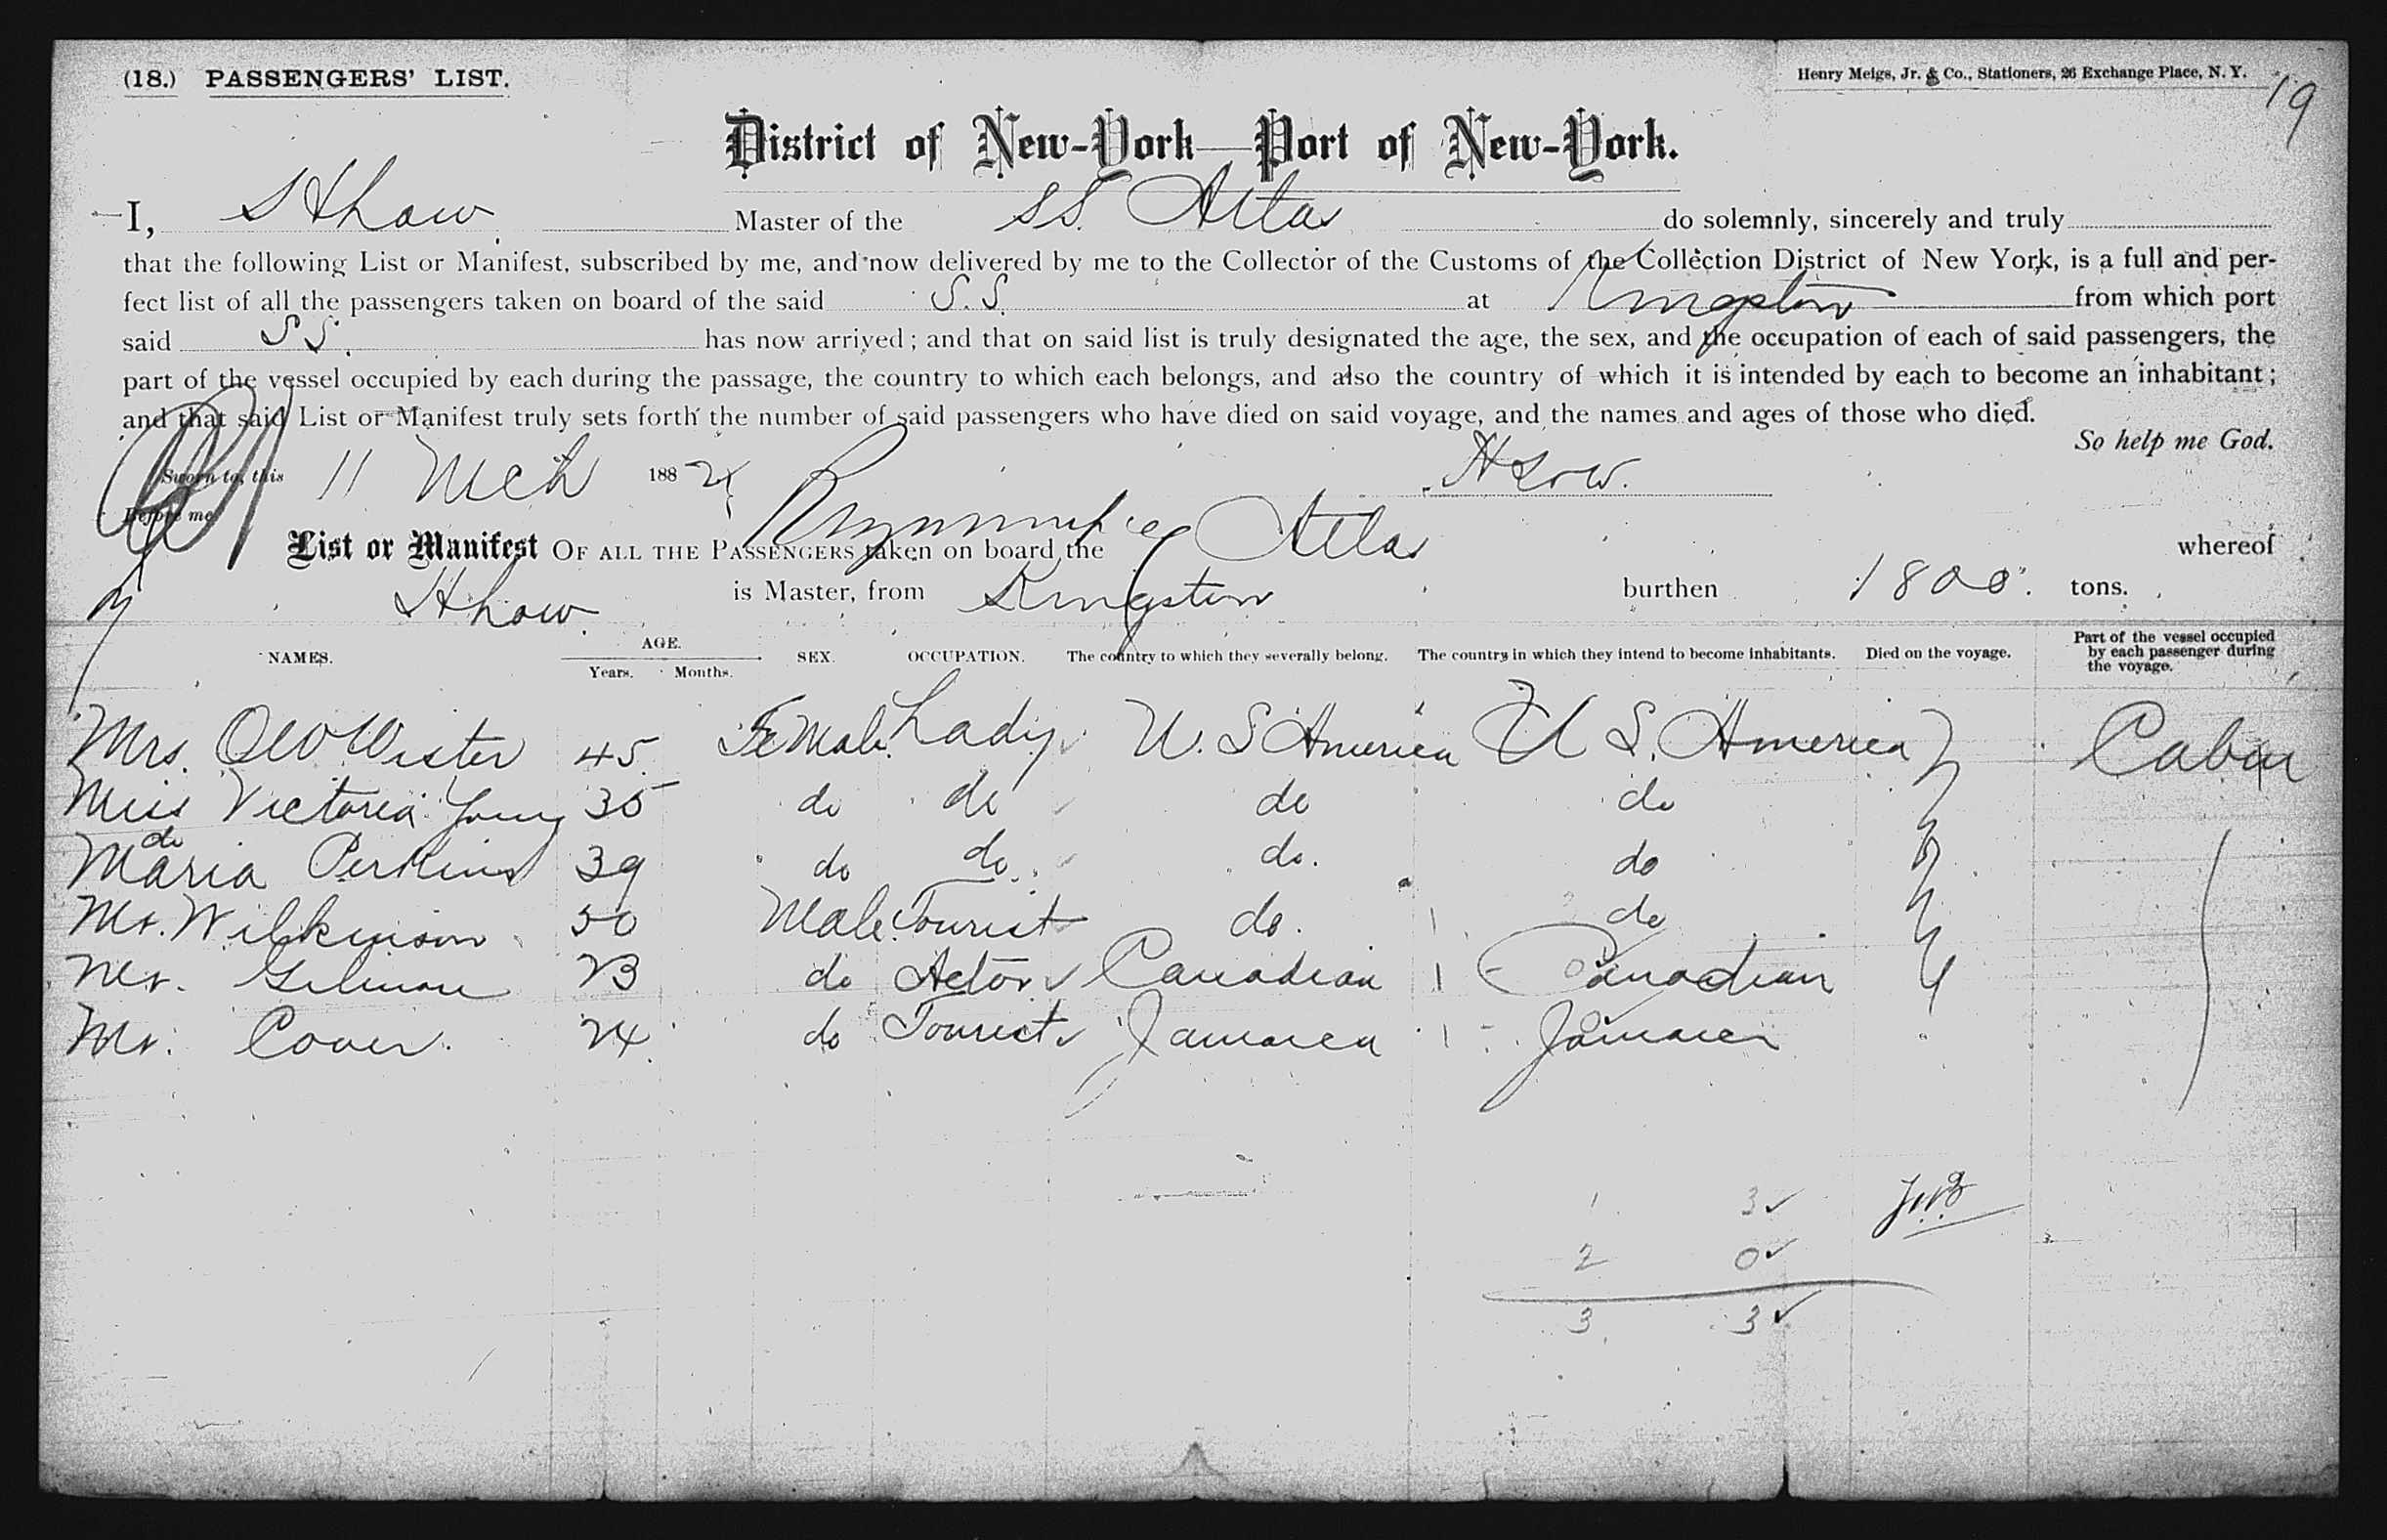 (18.) PASSENGERS' LIST.
Henry Meigs, Jr. & Co., Stationers, 26 Exchange Place, N. Y.
19
District of New-York—Port of New-York.
I, S Shaw Master of the SS. Atlas do solemnly, sincerely and truly
that the following List or Manifest, subscribed by me, and now delivered by me to the Collector of the Customs of the Collection District of New York, is a full and per-
fect list of all the passengers taken on board of the said S.S. at Kingston from which port
said SS. has now arrived; and that on said list is truly designated the age, the sex, and the occupation of each of said passengers, the
part of the vessel occupied by each during the passage, the country to which each belongs, and also the country of which it is intended by each to become an inhabitant;
and that said List or Manifest truly sets forth the number of said passengers who have died on said voyage, and the names and ages of those who died.
So help me God.
Sworn to, this 11 Mch 1882
Before me
List or Manifest OF ALL THE PASSENGERS taken on board the Atlas whereof
is Master, from Kingston burthen 1800. tons.
NAMES. AGE. Years. Months. SEX. OCCUPATION. The country to which they severally belong. The country in which they intend to become inhabitants. Died on the voyage. Part of the vessel occupied by each passenger during the voyage.
Mrs. O W Wister 45. Female. Lady U. S America U S. America Cabin
Miss Victoria Young 35 do do do do
do
Maria Perkins 39 do do. do. do
Mr. Wilkinson 50 Male Tourist do. do
Mr. Gilmore 23 do Actor Canadian 1 - Canadian
Mr. Cover. 24. do Tourist Jamaica 1 - Jamaica
1 3
2 0
3 3